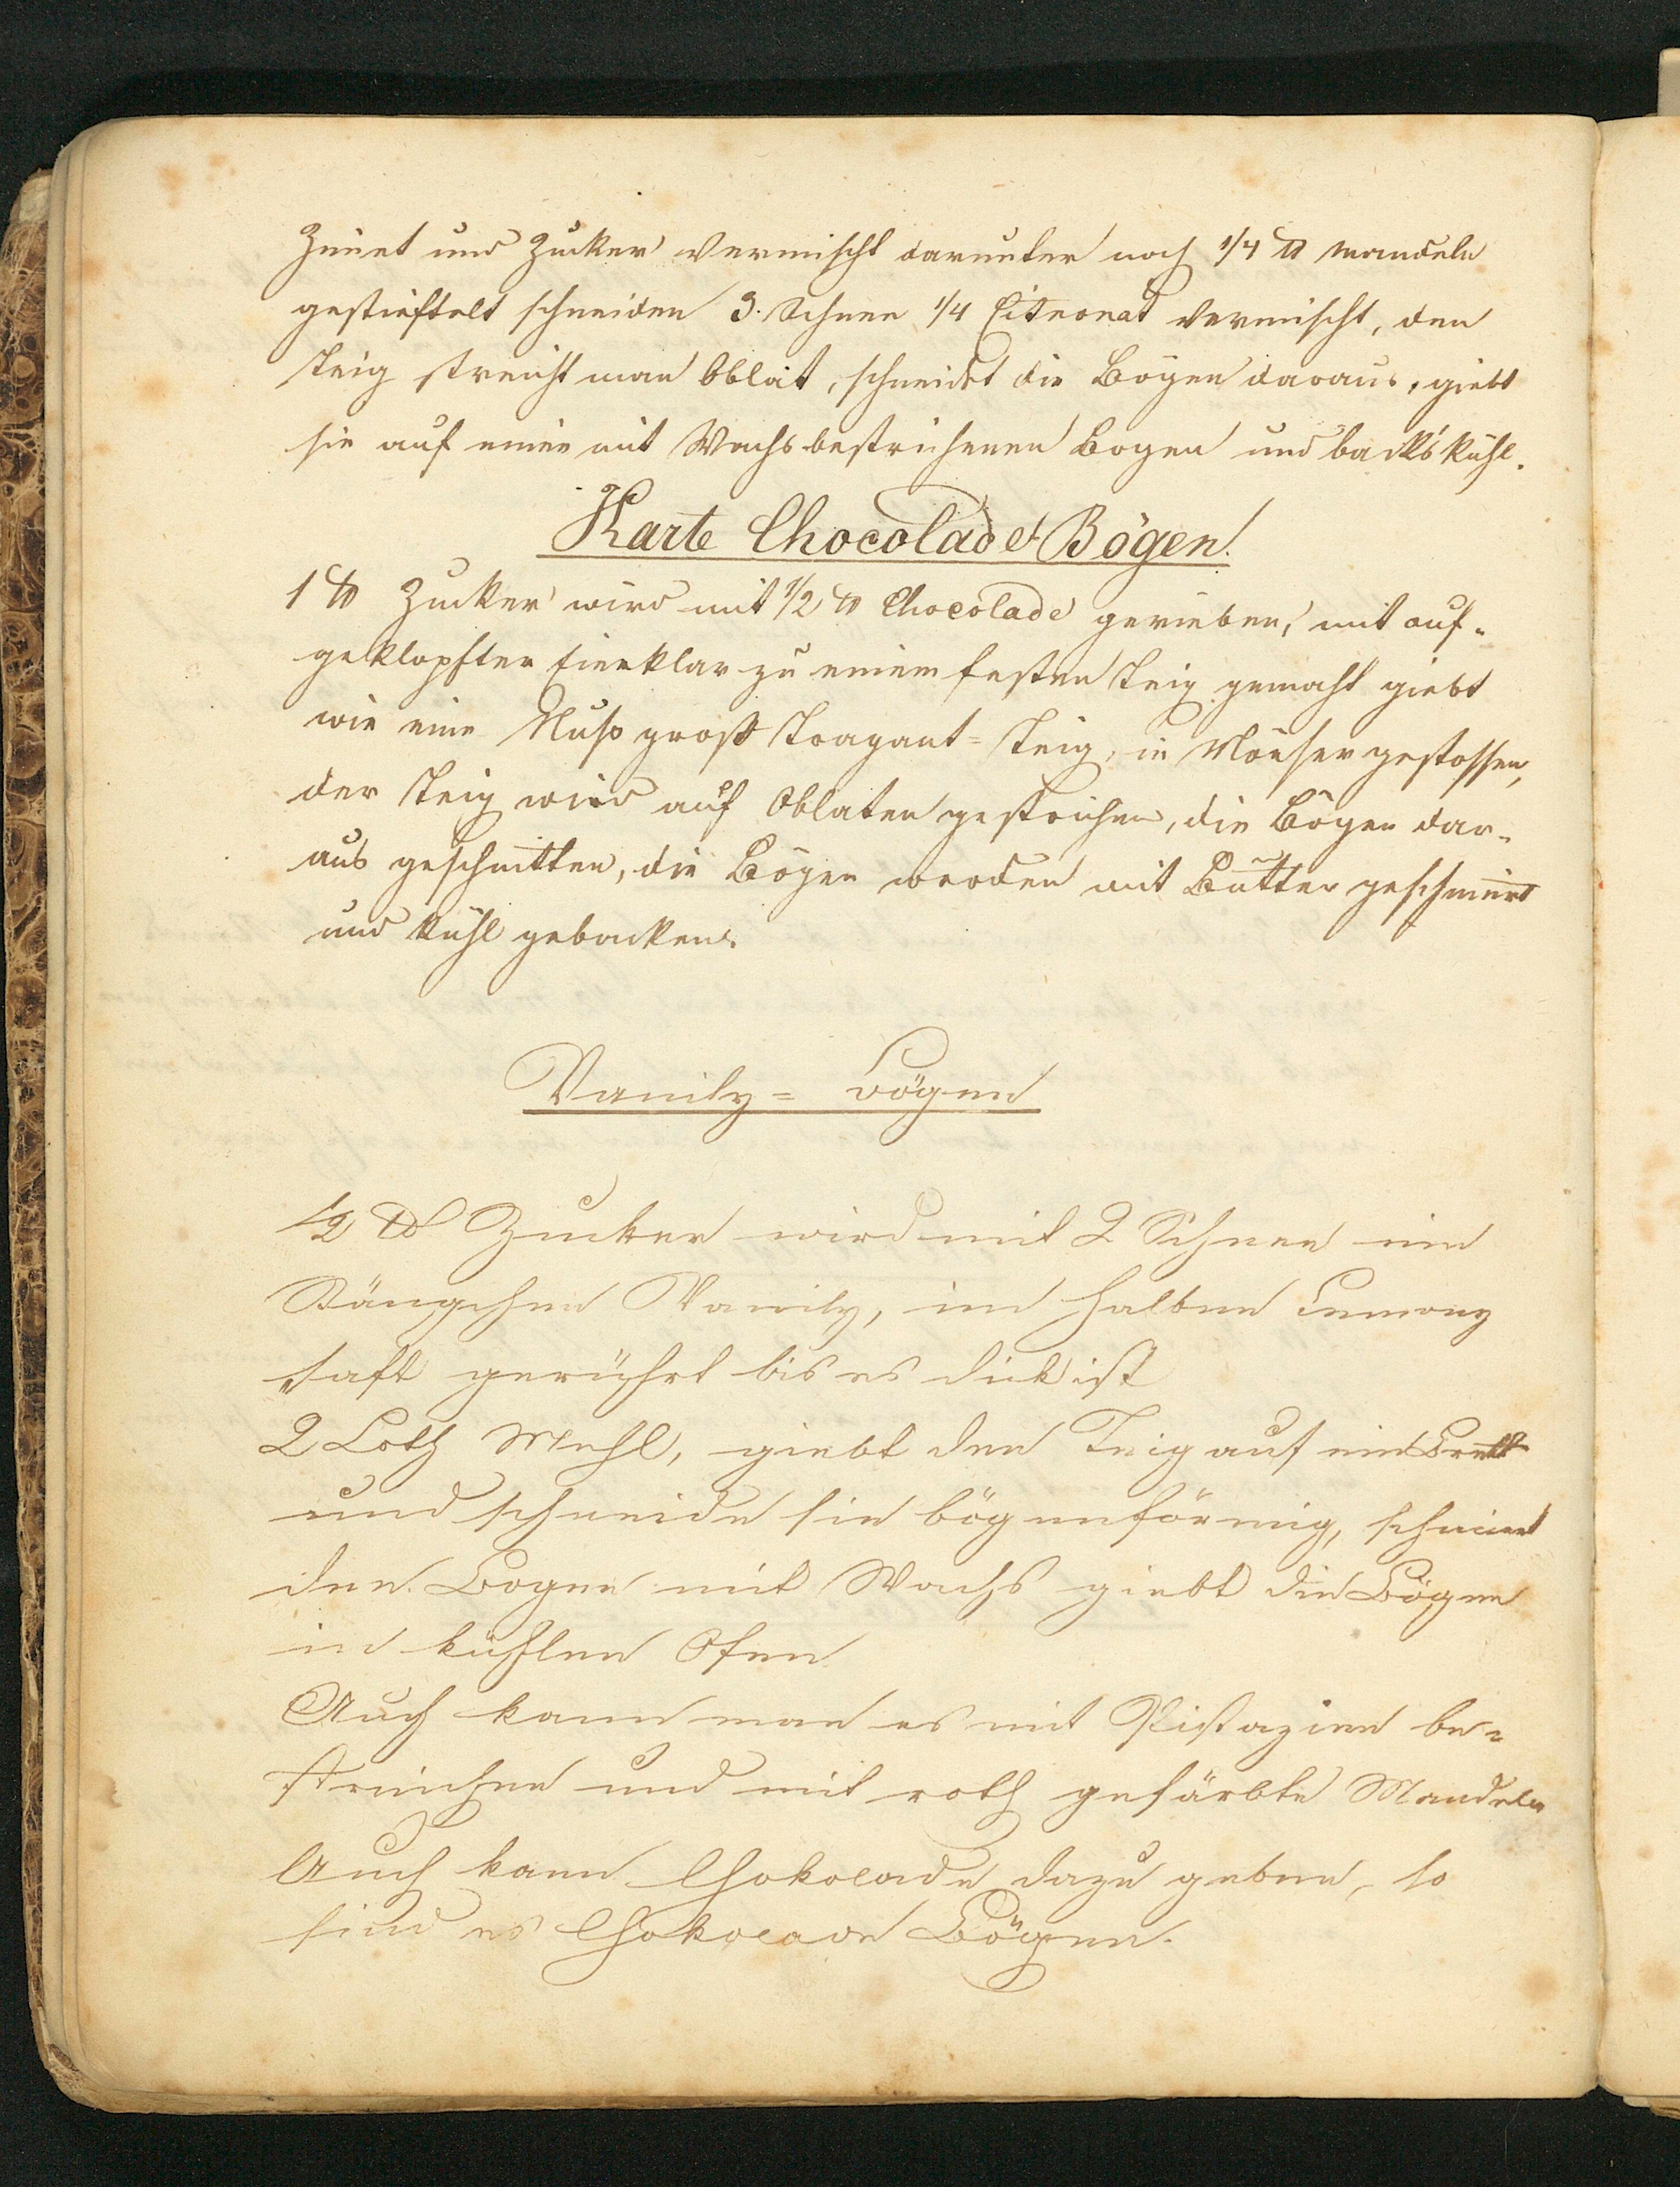 Zimet und Zucker vermischt darunter noch 1/4 ℔ Mandeln
gestieftelt schneiden 3. Schnee 1/4 Citronat vermischt, den
Teig streicht man Oblat, schneidet die Bögen daraus, giebt
sie auf einen mit Wachs bestrichenen Bogen und backts kühl.
Harte Chocolade Bögen.
1 ℔ Zucker wird mit 1/2 ℔ Chocolade gerieben, mit auf-
geklopften Eierklar zu einem festen Teig gemacht giebt
wie eine Nuß groß Tragant= Teig, in Mörser gestossen,
der Teig wird auf Oblaten gestrichen, die Bögen dar-
aus geschnitten, die Bögen werden mit Butter geschmirt
und kühl gebacken.
Vanily= Bögen
1/2 ℔ Zucker wird mit 2 Schnee ein
Stängchen Vanily, im halben Lemony
saft gerührt bis es dick ist
2 Loth Mehl, giebt den Teig auf ein Brett
und schneide sie bögenförmig, schmiert
den Bogen mit Wachs giebt die Bögen
in kühlen Ofen
Auch kann man es mit Pistazien be-
streichen und mit roth gefärbte Mandeln
Auch kann Chokolade dazu geben, so
sind es Chokolade Bögen.